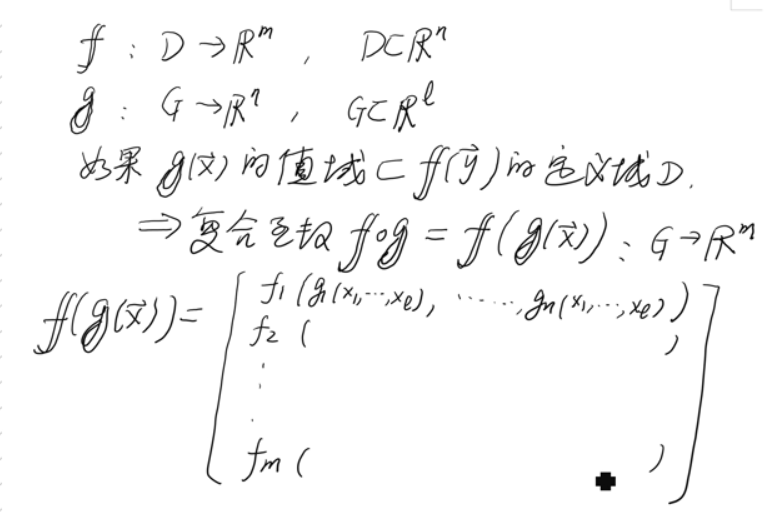 f : D → ℝᵐ , D⊂ℝⁿ
g : G → ℝⁿ , G⊂ℝˡ
如果 g(x⃗) 的值域 ⊂ f(y⃗) 的定义域 D.
⇒ 复合函数 f∘g = f(g(x⃗)) : G → ℝᵐ
f(g(x⃗)) = [ f₁ (g₁(x₁,…,xₗ), ……, gₙ(x₁,…,xₗ))
f₂ ( )
⋮
fₘ ( ) ]